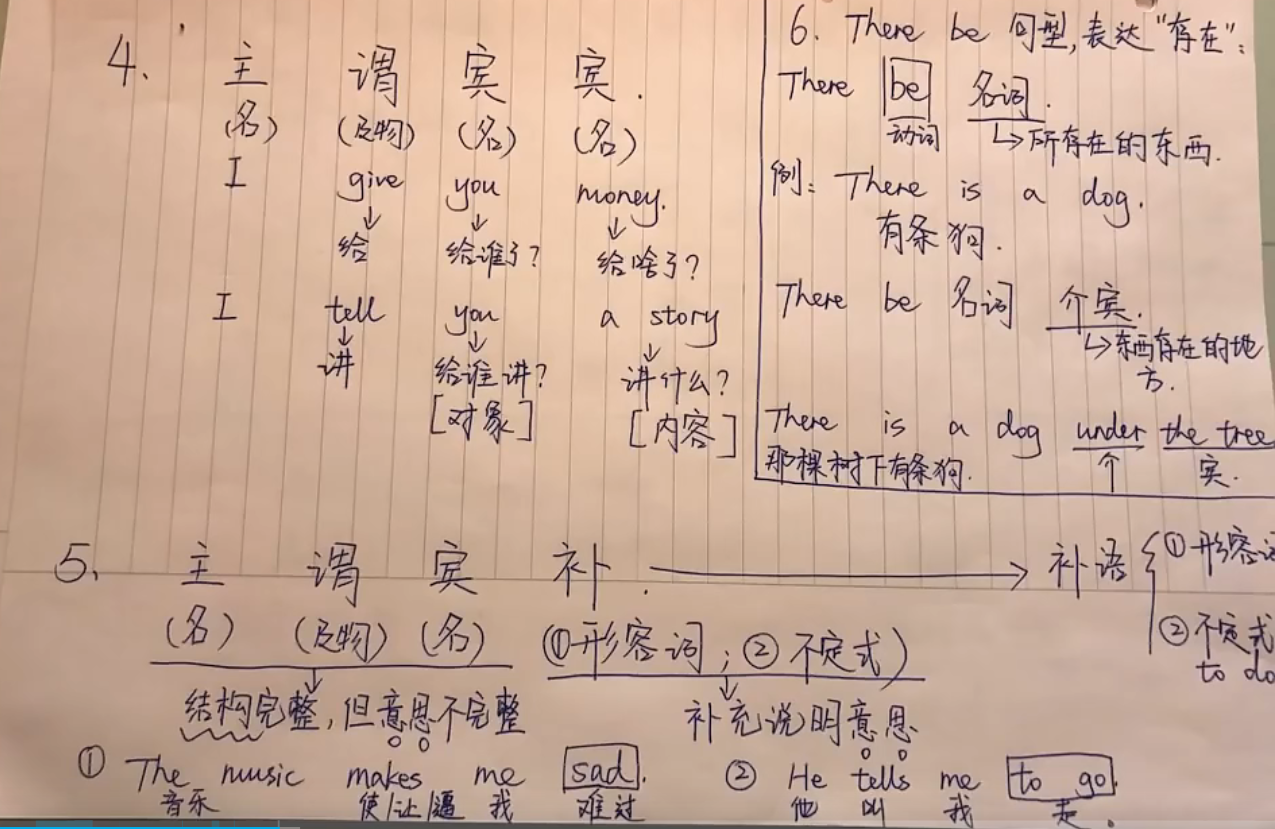 4. 主 谓 宾 宾.
(名) (及物) (名) (名)
I give you money.
给 给谁了? 给啥了?
I tell you a story
讲 给谁讲? 讲什么?
[对象] [内容]
6. There be 句型,表达"存在":
There be 名词.
动词 所存在的东西.
例: There is a dog.
有条狗.
There be 名词 介宾.
东西存在的地
方.
There is a dog under the tree
那棵树下有条狗. 介 宾.
5. 主 谓 宾 补. 补语 ①形容词
(名) (及物) (名) (①形容词; ②不定式) ②不定式
to do
结构完整,但意思不完整 补充说明意思
① The music makes me sad. ② He tells me to go.
音乐 使/让/逼 我 难过 他 叫 我 走.